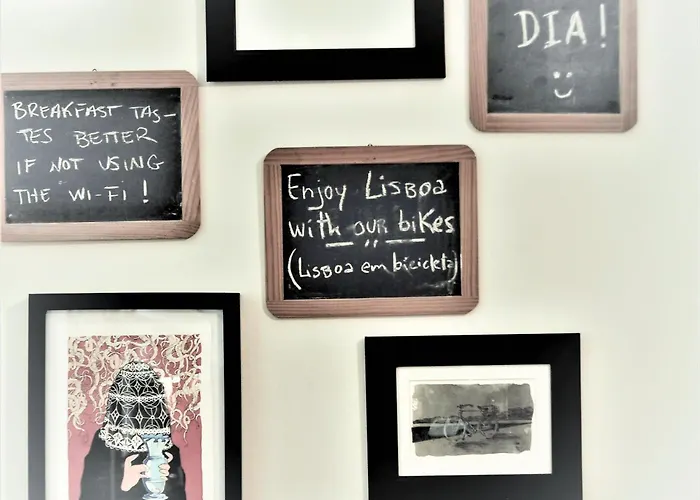 DIA!
BREAKFAST TAS-
TES BETTER
IF NOT USING
THE WI-FI!
Enjoy LISBOA
with our bikes
(LISBOA em bicicleta)